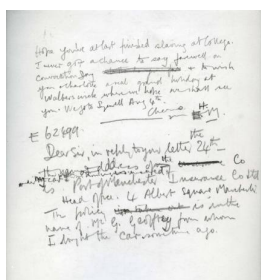 Hope you've at last finished slaving at College.
I never got a chance to say farewell on
Convocation Day or to wish
you + Charlotte a most good holiday at
where we hope we shall see
you. We go to Aug 4th.
Cheerio
E 62899.
Dear Sir, in reply to your letter 24th
the
the address of the Co
is Port of Manchester Insurance Co Ltd
Head Office. 4 Albert Square Manchester
The policy is in the
name of Mr G. Geoffrey from whom
I bought the car some time ago.